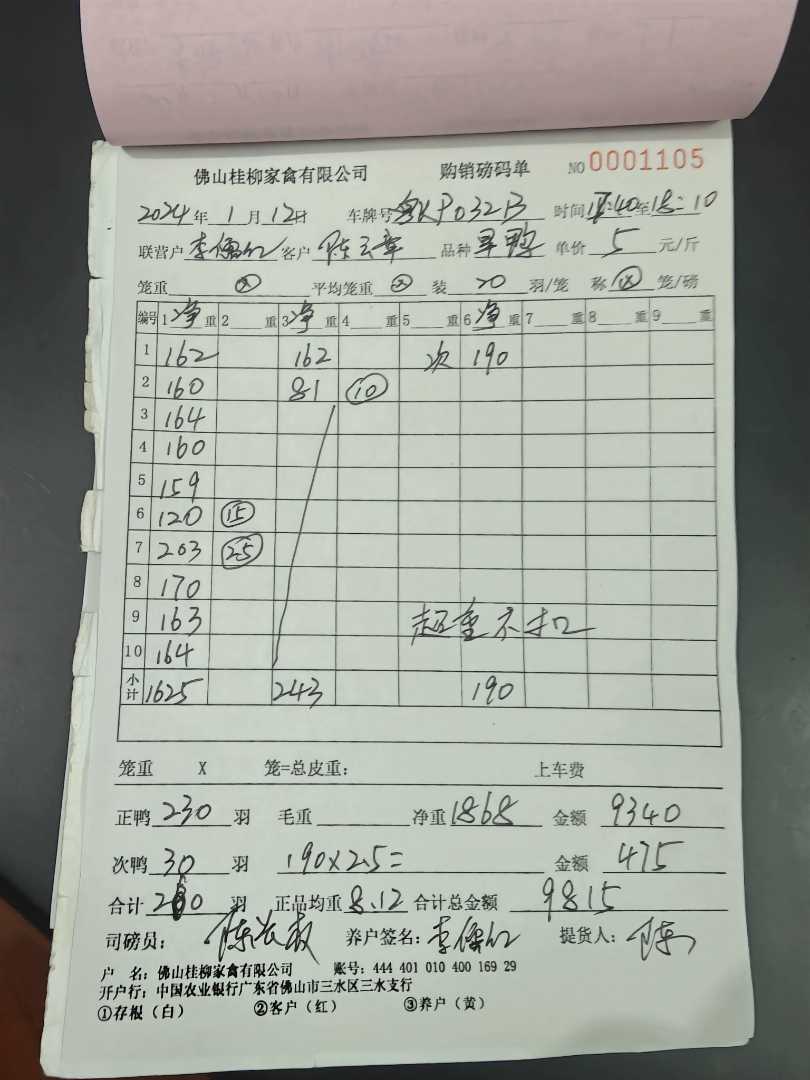 佛山桂柳家禽有限公司 购销磅码单 NO 0001105
2024年 1月 12日 车牌号 P032B 时间 17:40至18:10
联营户 李 客户 陈 章 品种 旱鸭 单价 5 元/斤
笼重 平均笼重 装 20 羽/笼 称 笼/磅
编号 1 净 重 2 重 3 净 重 4 重 5 重 6 净 重 7 重 8 重 9 重
1 162 162 次 190
2 160 81 10
3 164
4 160
5 159
6 120 15
7 203 25
8 170
9 163 超重不扣
10 164
小计 1625 243 190
笼重 X 笼=总皮重： 上车费
正鸭 230 羽 毛重 净重 1868 金额 9340
次鸭 30 羽 190×2.5= 金额 475
合计 260 羽 正品均重 8.12 合计总金额 9815
司磅员： 陈 养户签名： 李 提货人： 陈
户 名：佛山桂柳家禽有限公司 账号：444 401 010 400 169 29
开户行：中国农业银行广东省佛山市三水区三水支行
①存根（白） ②客户（红） ③养户（黄）